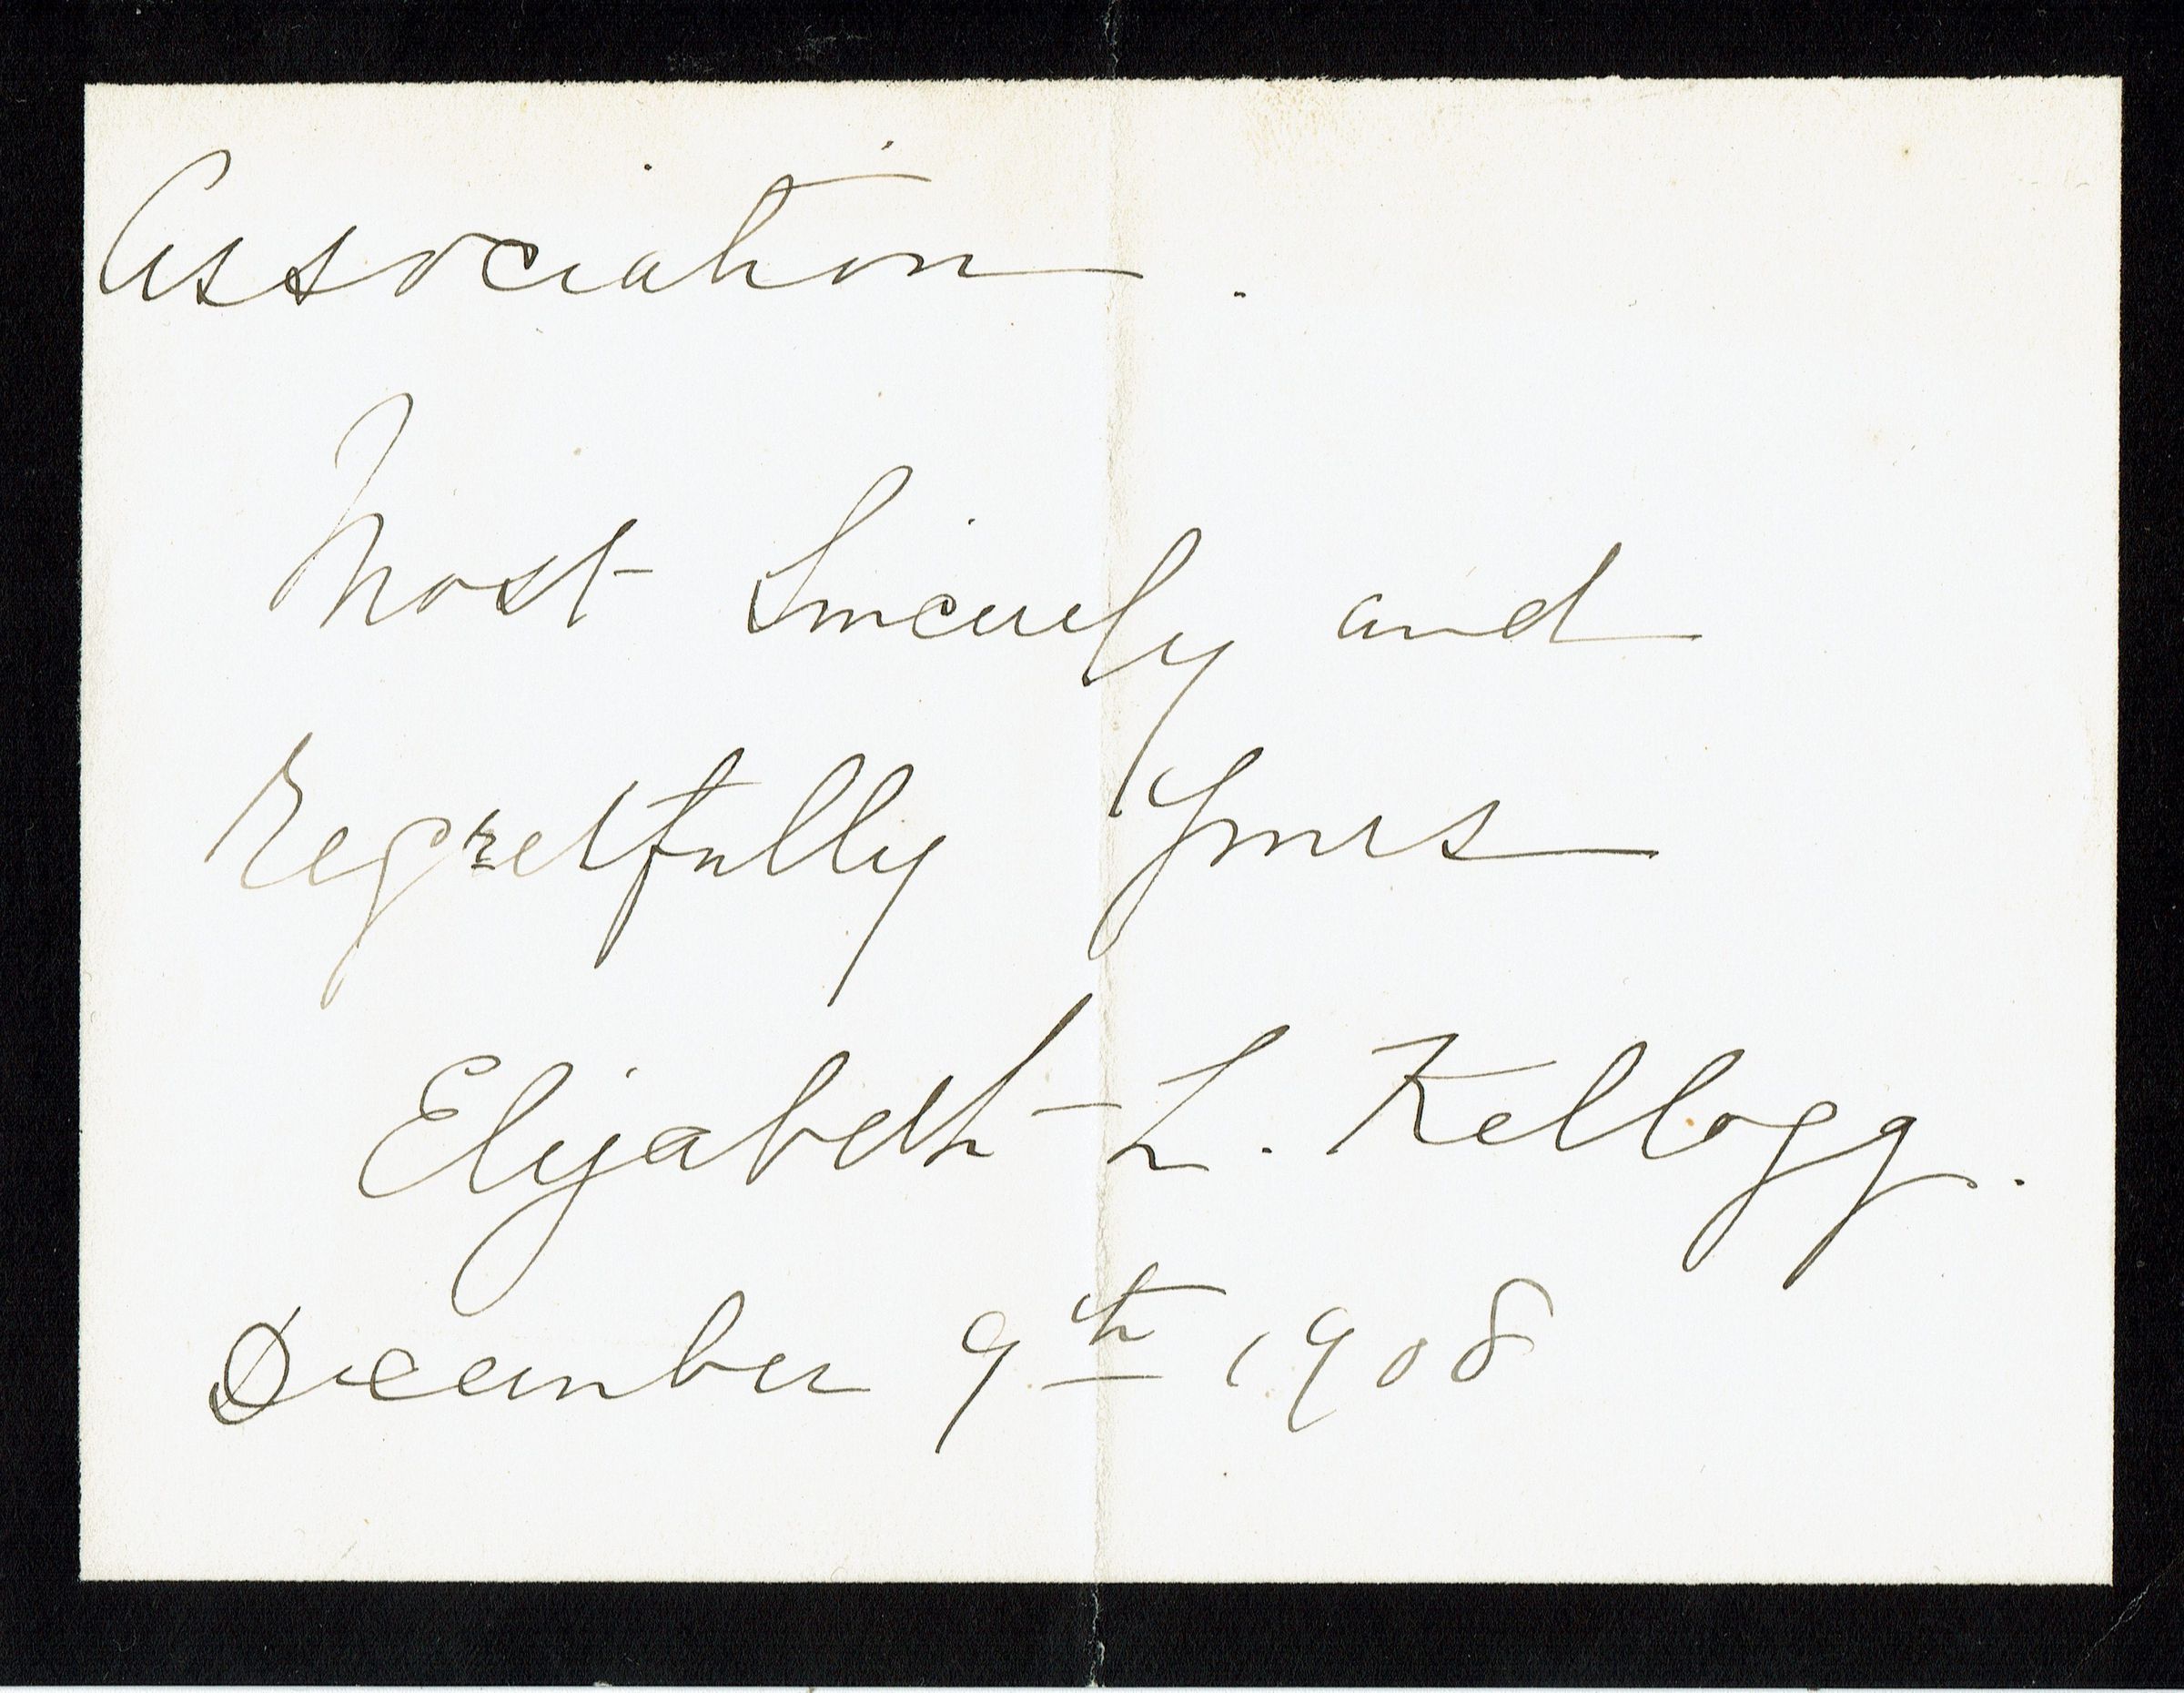 Association.
Most Sincerely and
Regretfully Yours
Elizabeth L. Kellogg.
December 9th 1908